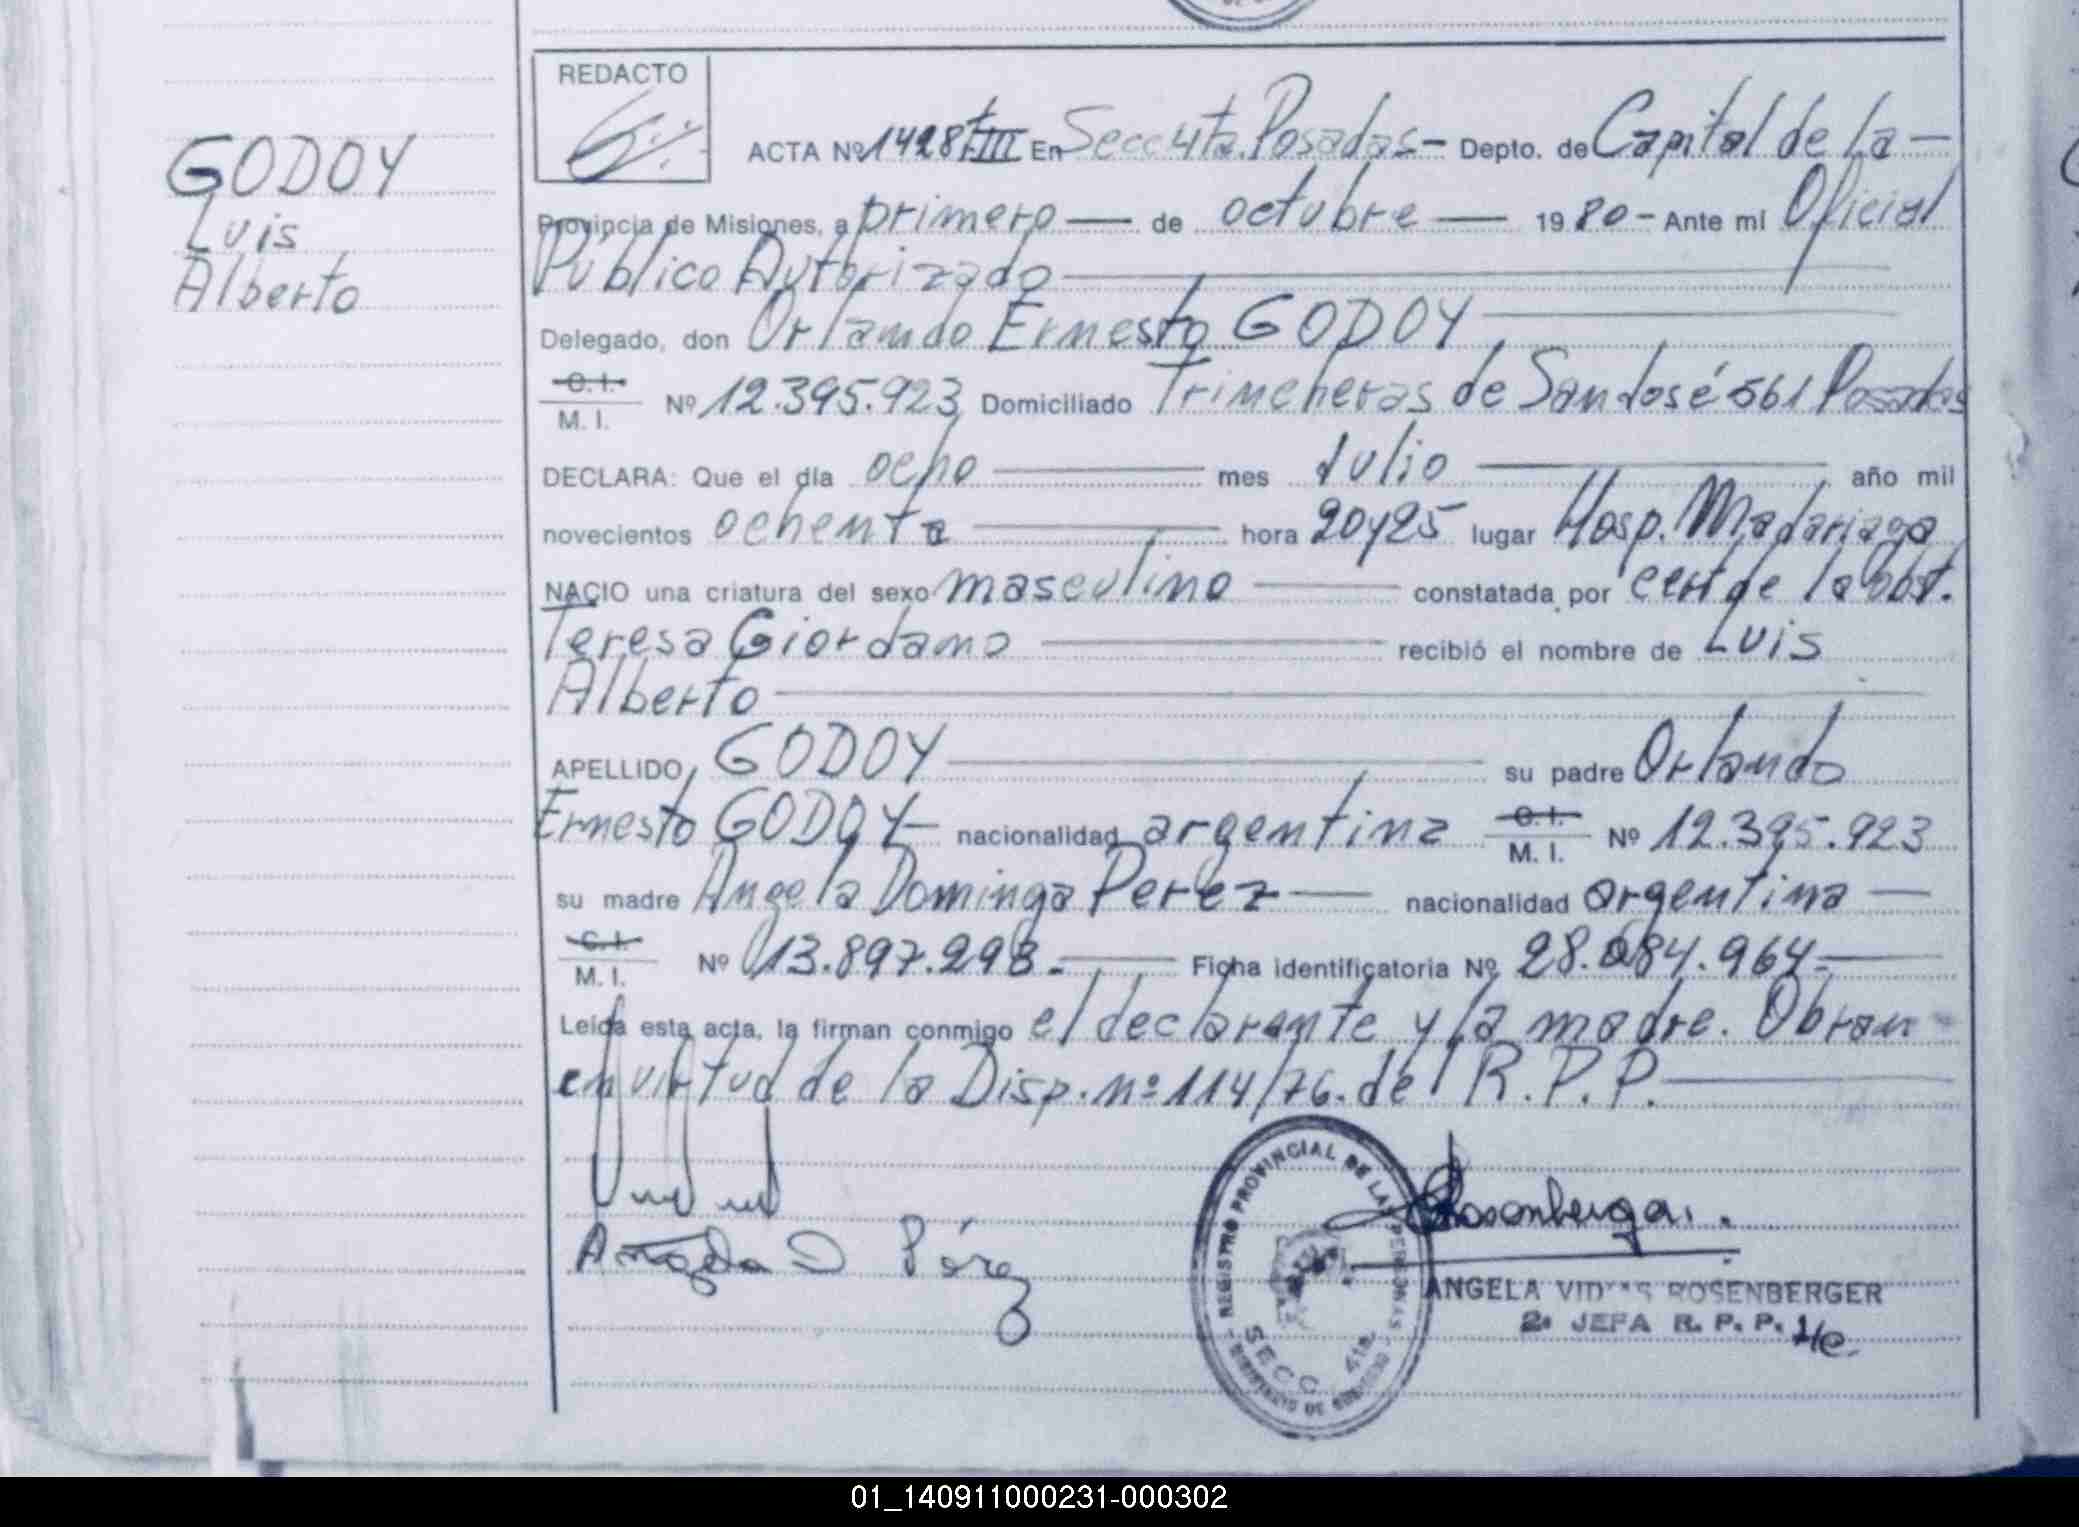 REDACTO
GODOY
Luis
Alberto
ACTA Nº 1428 t III En Secc 4ta. Posadas - Depto. de Capital de la -
Provincia de Misiones, a primero de octubre 1980 - Ante mi Oficial
Público Autorizado
Delegado, don Orlando Ernesto GODOY
C. I. M. I. Nº 12.395.923 Domiciliado Trincheras de San José 561 Posadas
DECLARA: Que el día ocho mes Julio año mil
novecientos ochenta hora 20y25 lugar Hosp. Madariaga
NACIO una criatura del sexo masculino constatada por cert de la obst.
Teresa Giordano recibió el nombre de Luis
Alberto
APELLIDO GODOY su padre Orlando
Ernesto GODOY nacionalidad argentina C. I. M. I. Nº 12.395.923
su madre Angela Dominga Perez nacionalidad argentina
C. I. M. I. Nº 13.897.298.- Ficha identificatoria Nº 28.084.964.-
Leída esta acta, la firman conmigo el declarante y la madre. Obran
en virtud de la Disp. nº 114/76. del R.P.P.
Angela D Pérez
Rosenberger.
REGISTRO PROVINCIAL DE LAS PERSONAS
SECC 4ta.
ANGELA ROSENBERGER
2ª JEFA R. P. P.
01_140911000231-000302